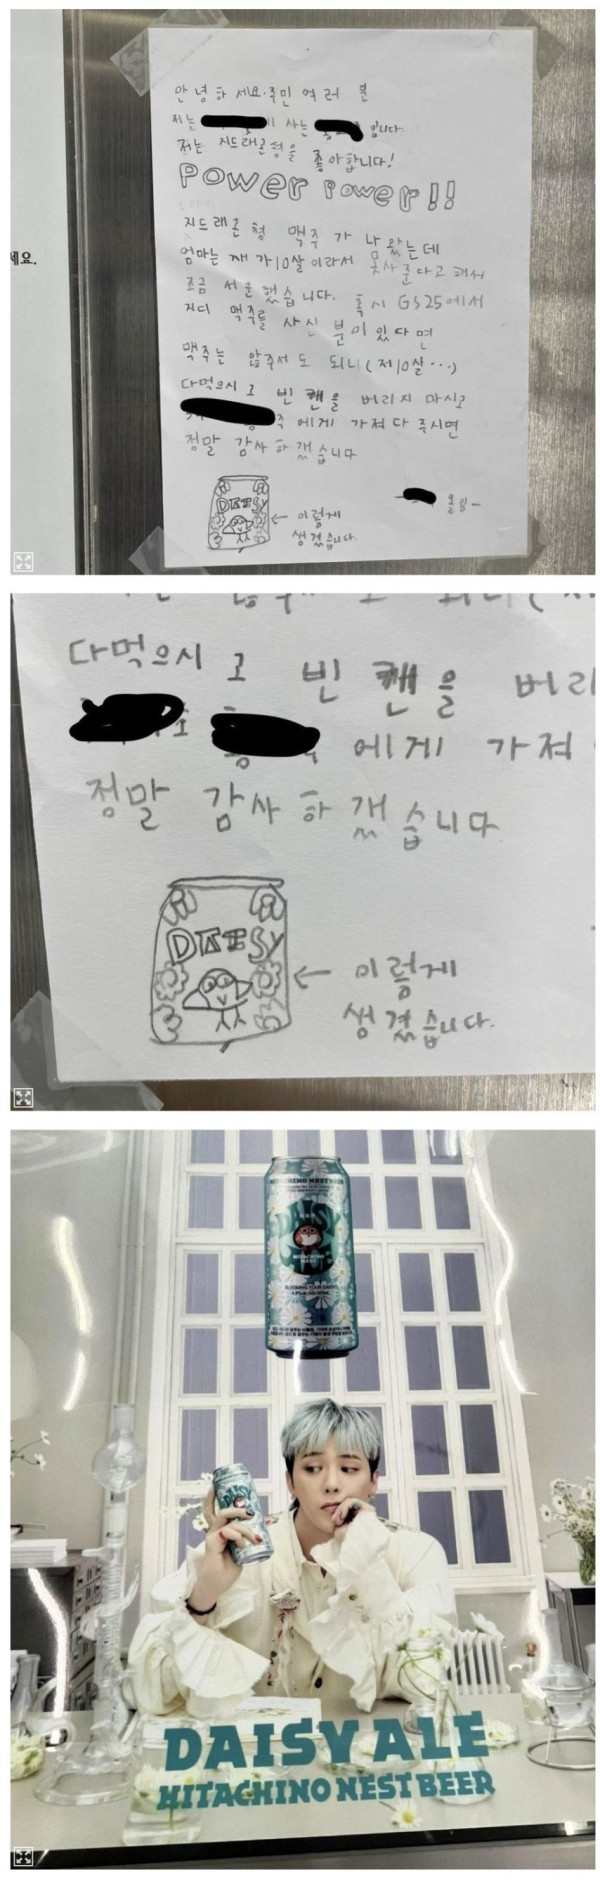 세요.
안녕하세요. 주민 여러분
저는 사는 입니다.
저는 지드래곤형을 좋아합니다!
POWER POWER!!
지드래곤 형 맥주가 나왔는데
엄마는 제가 10살이라서 못사준다고 해서
조금 서운했습니다. 혹시 GS25에서
지디 맥주를 사신 분이 있다면
맥주는 않주셔도 되니 (저 10살...)
다먹으시고 빈 캔을 버리지 마시고
에게 가져다 주시면
정말 감사하겠습니다
DAISY
← 이렇게
생겼습니다.
올림-
다먹으시고 빈 캔을 버리
에게 가져
정말 감사하겠습니다
DAISY
← 이렇게
생겼습니다.
HITACHINO NEST BEER
DAISY
ALE
HITACHINO
NEST
DAISY
DAISY ALE
HITACHINO NEST BEER